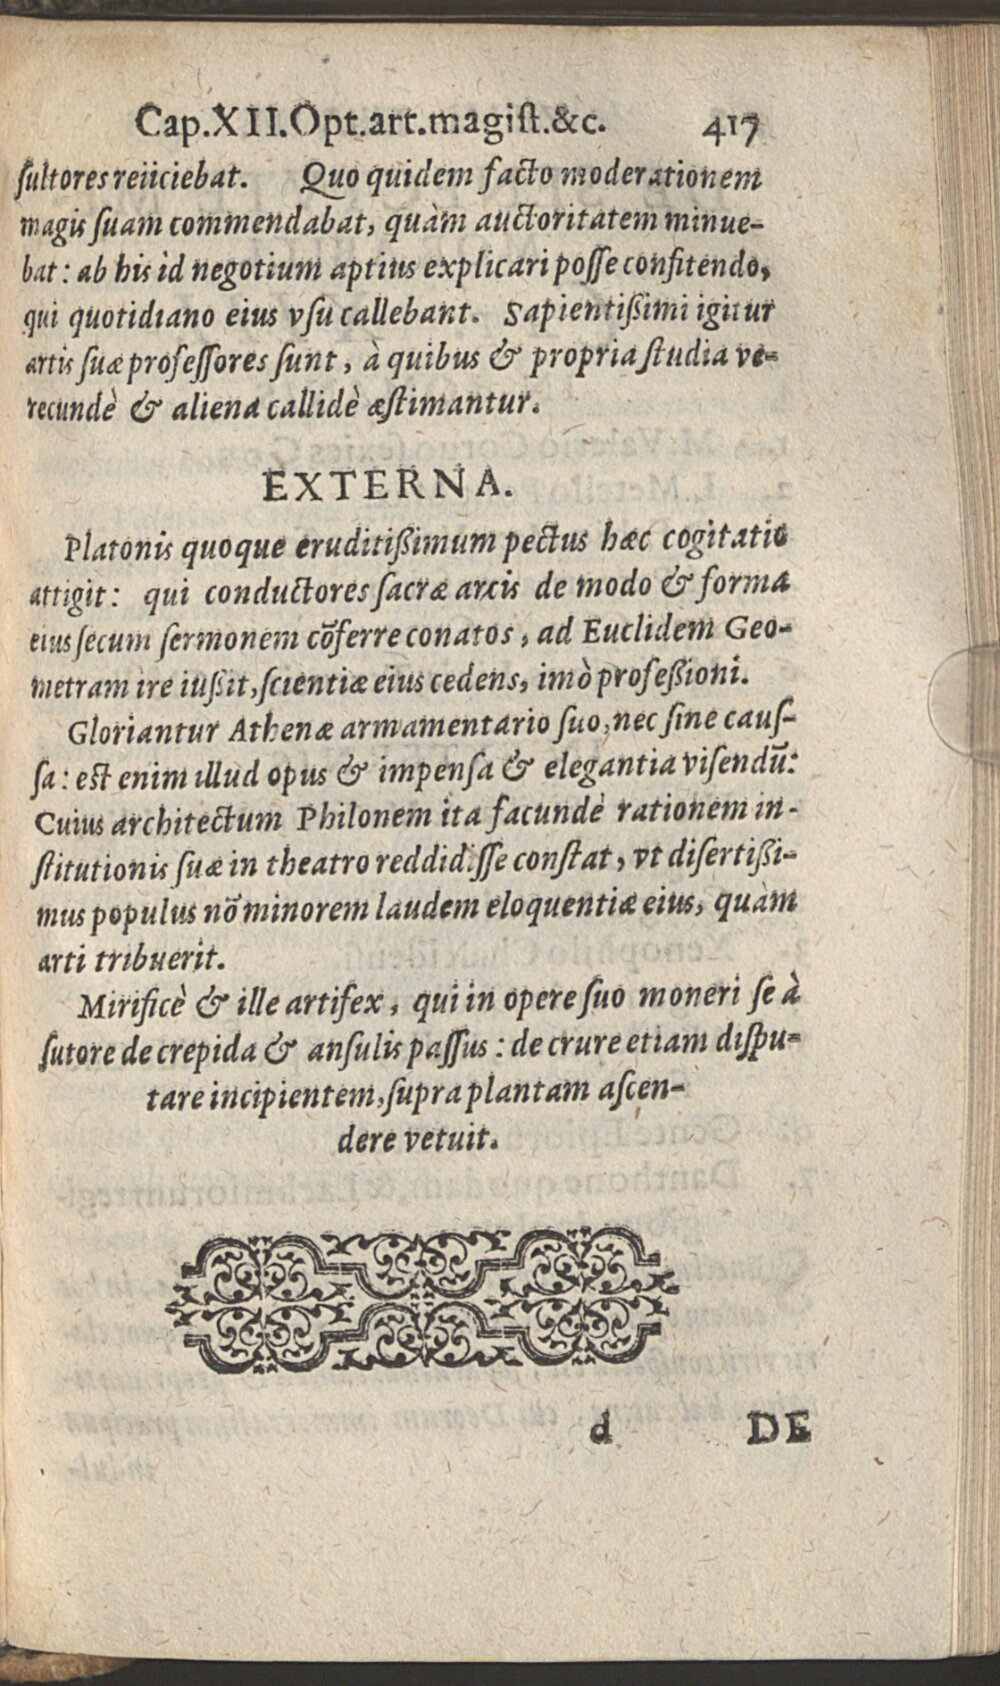 Cap.XII.Opt.art.magiſt.&c. 417
ſultores reiiciebat. Quo quidem facto moderationem
magis ſuam commendabat, quàm auctoritatem minue-
bat: ab his id negotium aptius explicari poſſe confitendo,
qui quotidiano eius vſu callebant. Sapientißimi igitur
artis ſuæ profeſſores ſunt, à quibus & propria ſtudia ve-
recundè & aliena callidè æſtimantur.
EXTERNA.
Platonis quoque eruditißimum pectus hæc cogitatio
attigit: qui conductores ſacræ arcis de modo & forma
eius ſecum ſermonem cõferre conatos, ad Euclidem Geo-
metram ire iußit, ſcientiæ eius cedens, imò profeßioni.
Gloriantur Athenæ armamentario ſuo, nec ſine cauſ-
ſa: est enim illud opus & impenſa & elegantia viſendũ:
Cuius architectum Philonem ita facundè rationem in-
ſtitutionis ſuæ in theatro reddidiſſe conſtat, vt diſertißi-
mus populus nõ minorem laudem eloquentiæ eius, quàm
arti tribuerit.
Mirificè & ille artifex, qui in opere ſuo moneri ſe à
ſutore de crepida & anſulis paſſus: de crure etiam diſpu-
tare incipientem, ſupra plantam aſcen-
dere vetuit.
d DE